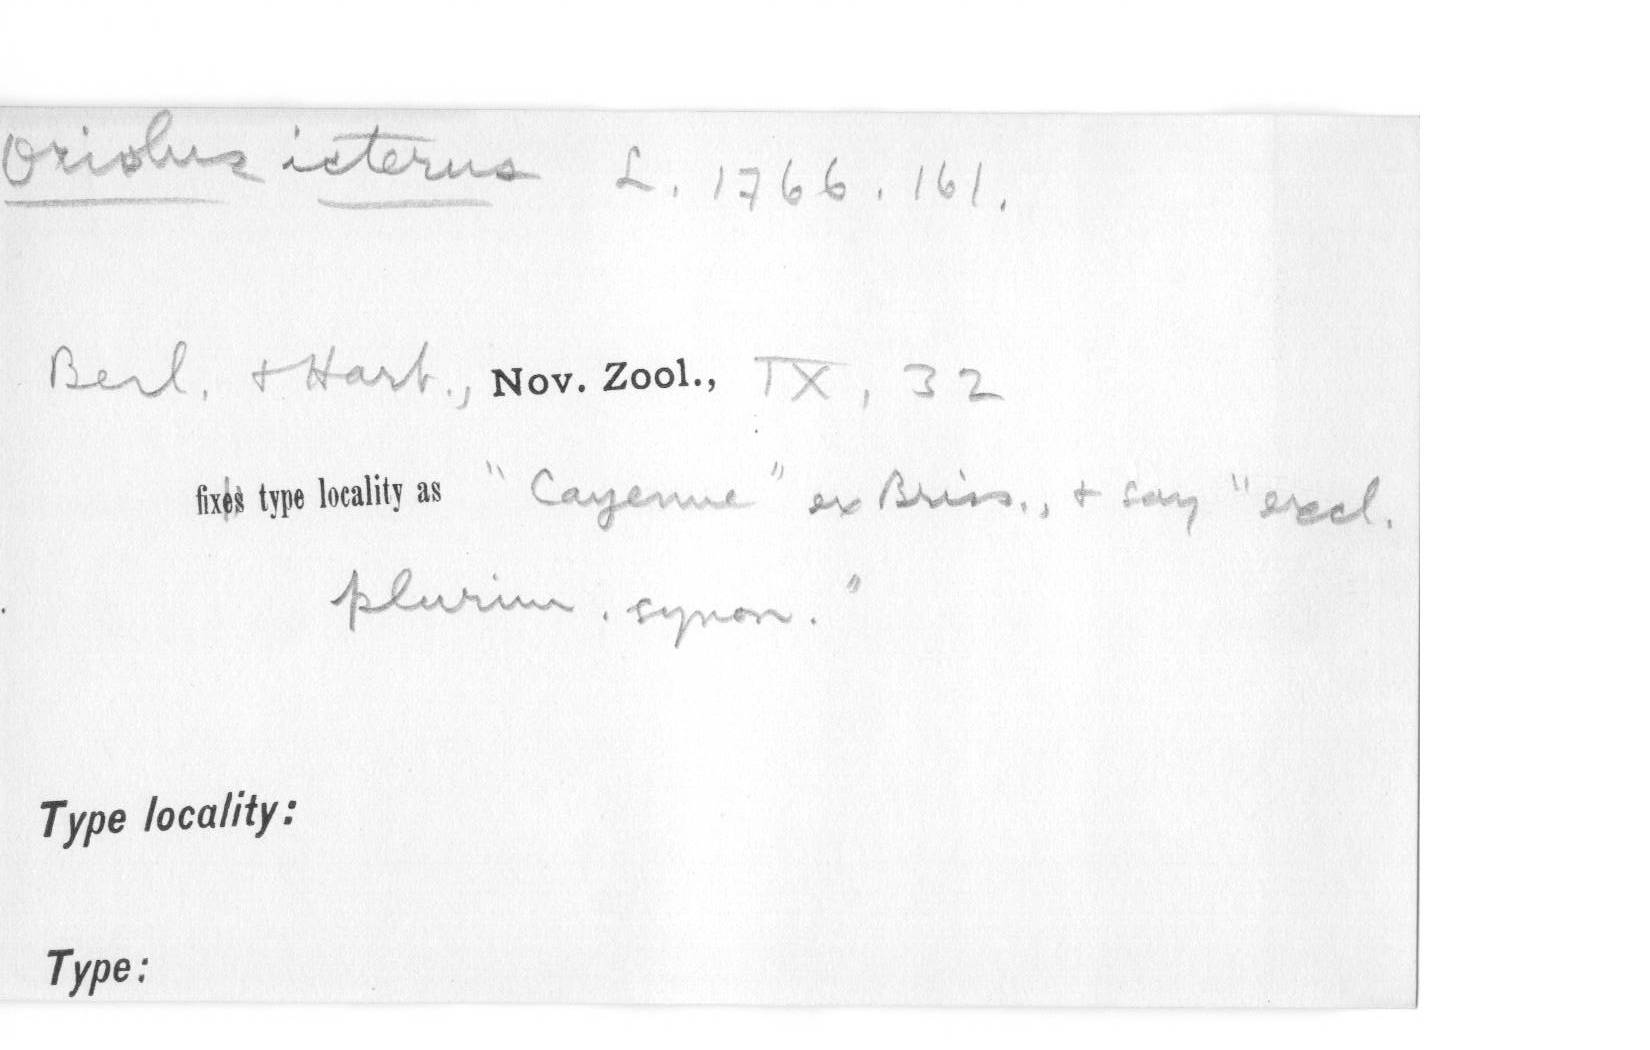 Oriolus icterus L. 1766. 161.
Berl. + Hart., Nov. Zool., IX, 32
fixes type locality as "Cayenne" ex Briss., + say "excl.
plurim. synon."
Type locality:
Type: